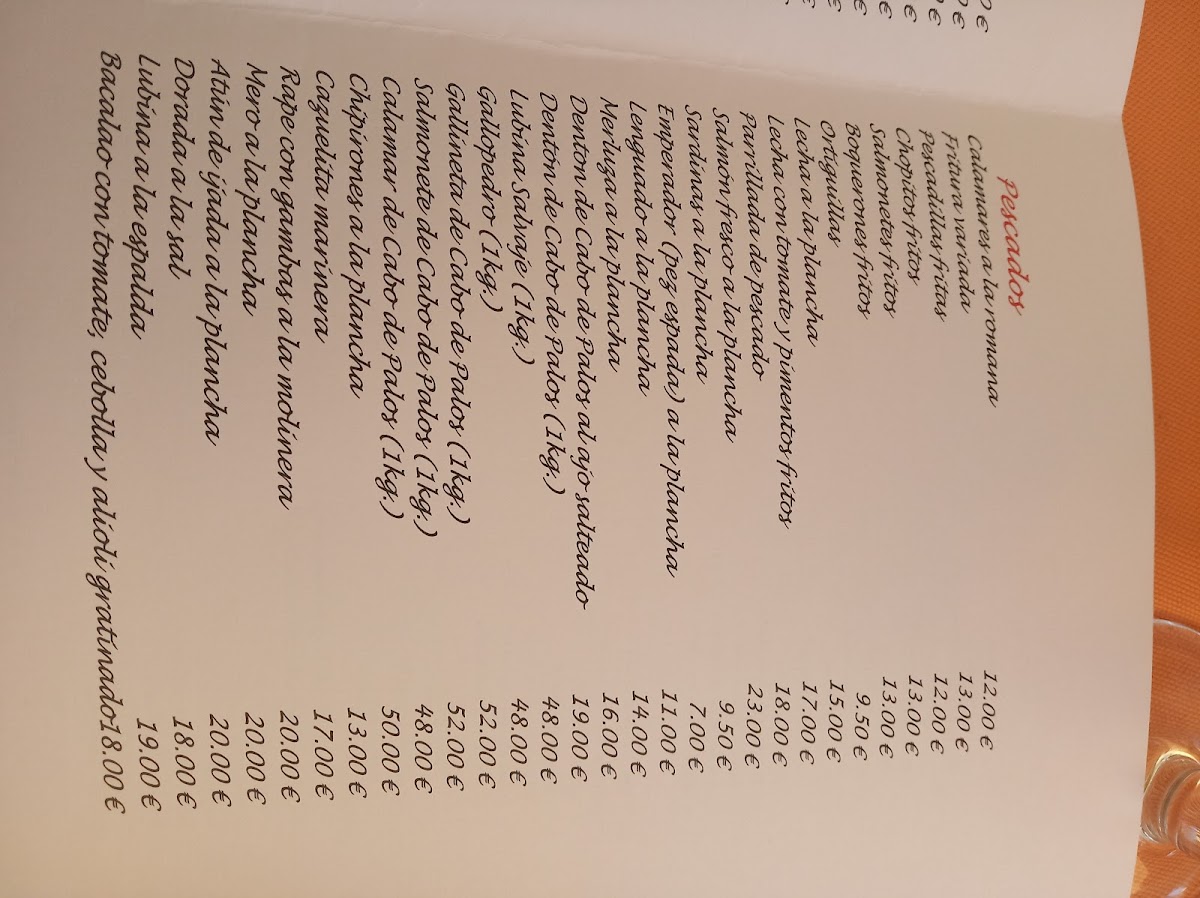 Pescados
Calamares a la romana 12.00 €
Fritura variada 13.00 €
Pescadillas fritas 12.00 €
Chopitos fritos 13.00 €
Salmonetes fritos 13.00 €
Boquerones fritos 9.50 €
Ortiguillas 15.00 €
Lecha a la plancha 17.00 €
Lecha con tomate y pimentos fritos 18.00 €
Parrillada de pescado 23.00 €
Salmón fresco a la plancha 9.50 €
Sardinas a la plancha 7.00 €
Emperador (pez espada) a la plancha 11.00 €
Lenguado a la plancha 14.00 €
Merluza a la plancha 16.00 €
Dentón de Cabo de Palos al ajo salteado 19.00 €
Dentón de Cabo de Palos (1kg.) 48.00 €
Lubina Salvaje (1kg.) 48.00 €
Gallopedro (1kg.) 52.00 €
Gallineta de Cabo de Palos (1kg.) 52.00 €
Salmonete de Cabo de Palos (1kg.) 48.00 €
Calamar de Cabo de Palos (1kg.) 50.00 €
Chipirones a la plancha 13.00 €
Cazuelita marinera 17.00 €
Rape con gambas a la molinera 20.00 €
Mero a la plancha 20.00 €
Atún de ijada a la plancha 20.00 €
Dorada a la sal 18.00 €
Lubina a la espalda 19.00 €
Bacalao con tomate, cebolla y alioli gratinado18.00 €